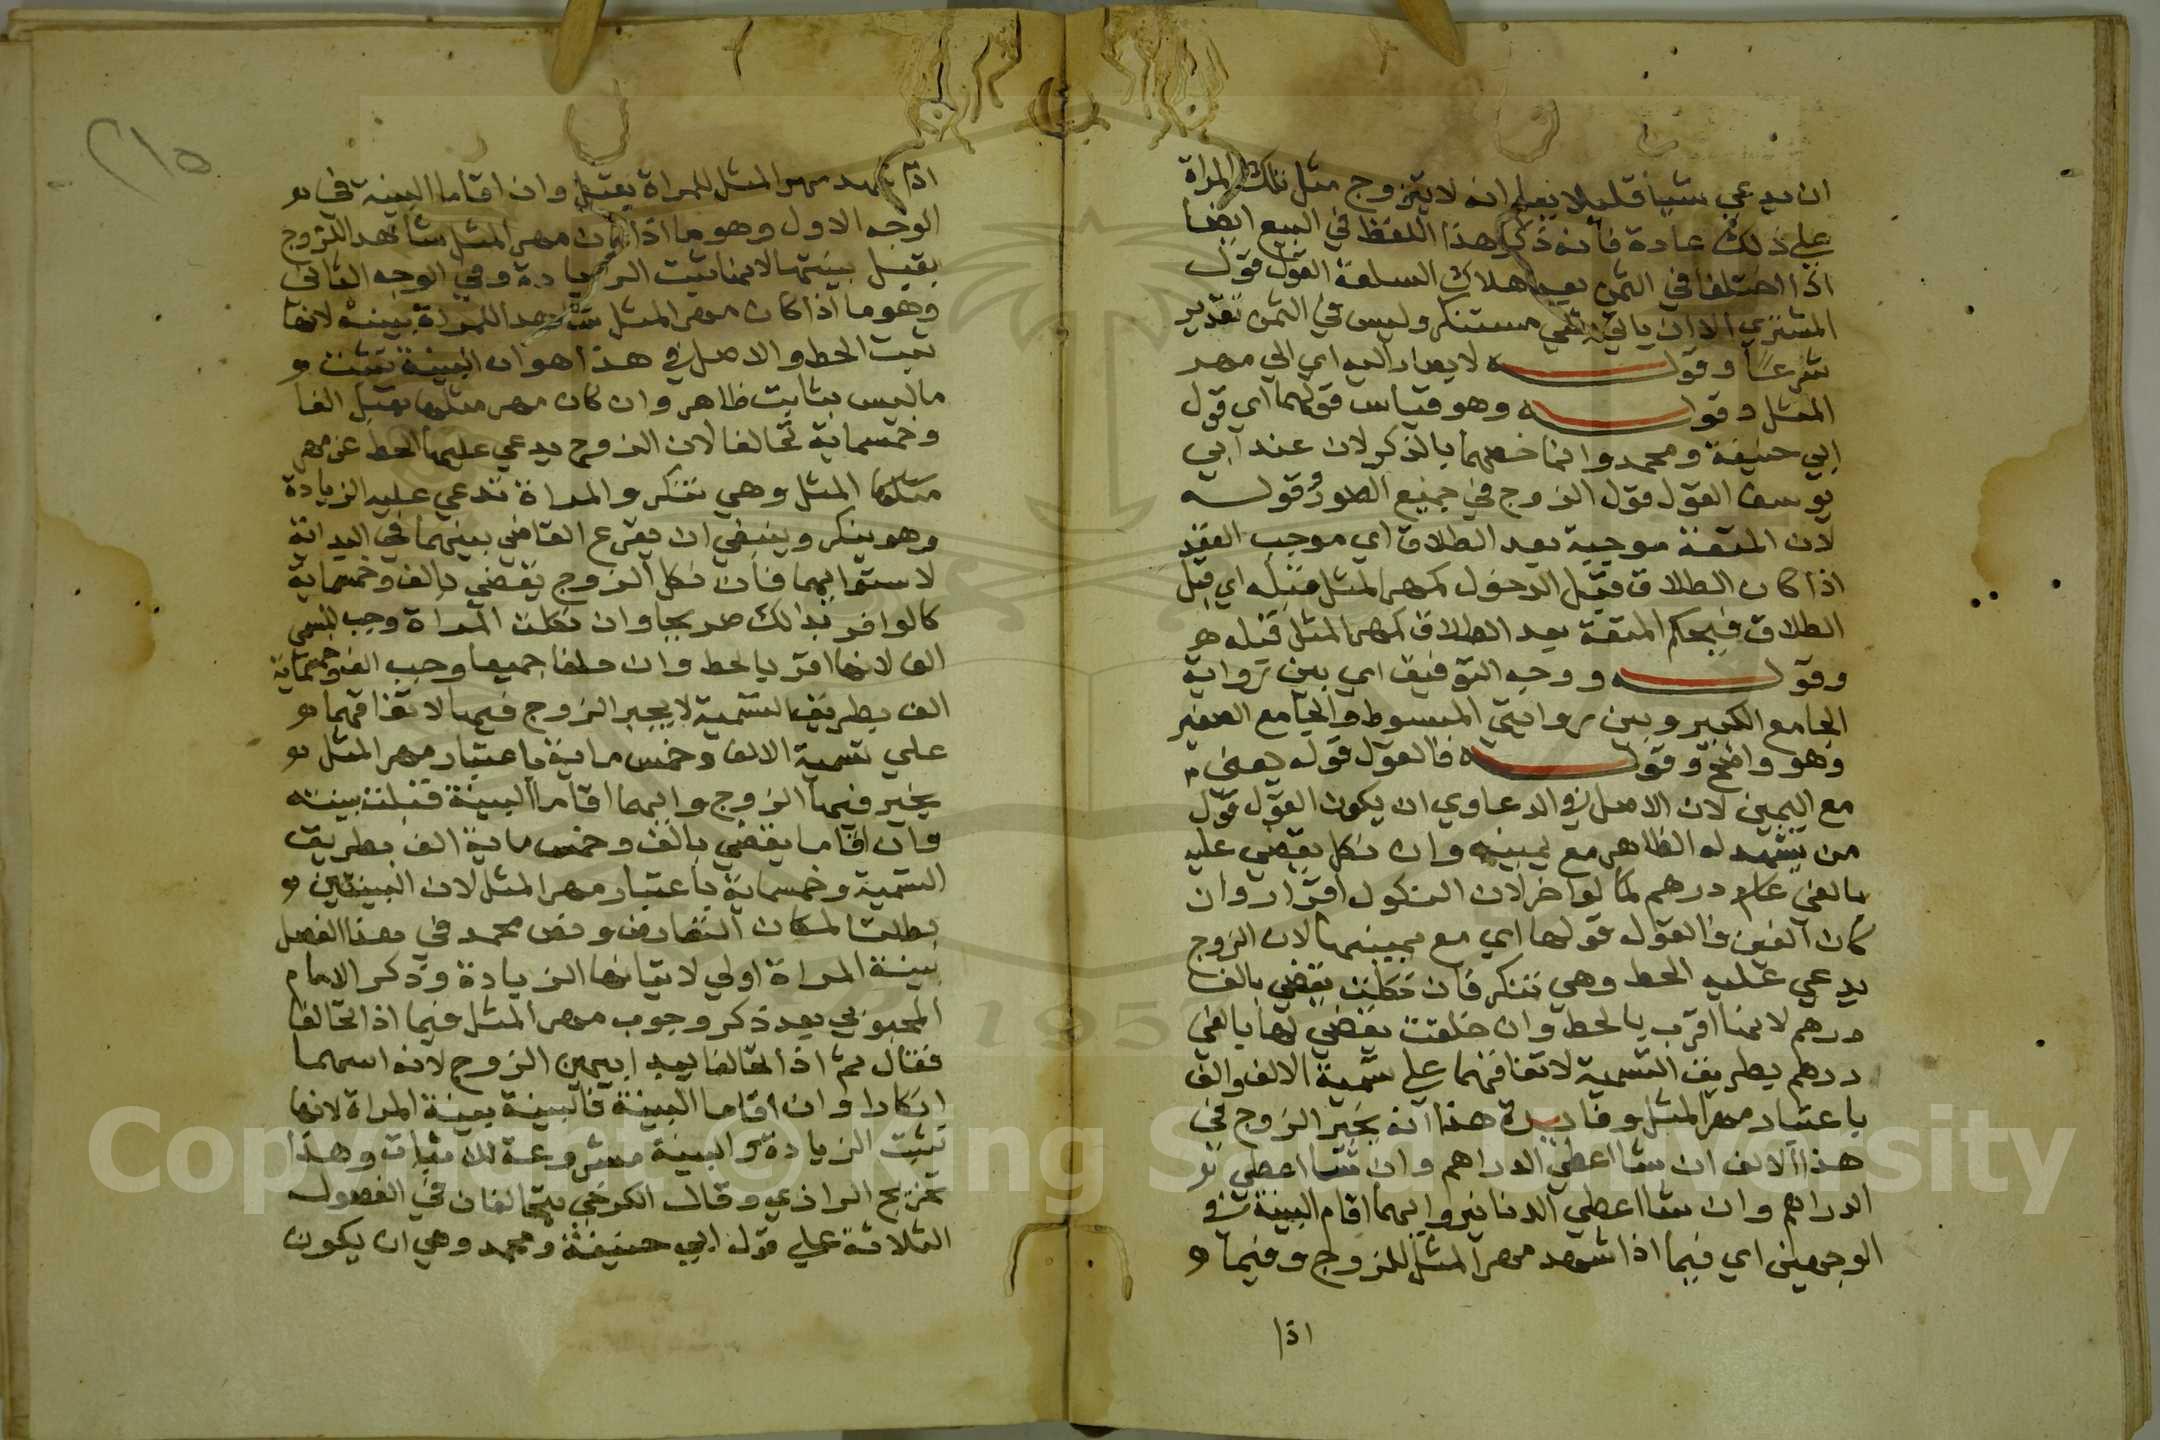 ان يدعي شيا قليلا يعلم انه لا يتزوج مثل تلك المراة
علي ذلك عادة فانه ذكر هذا اللفظ في البيع ايضا
اذا اختلفا في الثمن بعد هلاك السلعة القول قول
المشتري الا ان ياتي بشي مستنكر وليس في الثمن تقدير
شرعا وقوله لا يصار اليه اي الي مهر
المثل وقوله وهو قياس قولهما اي قول
ابي حنيفة ومحمد وانما خصهما بالذكر لان عند ابي
يوسف القول قول الزوج في جميع الصور وقوله
لان المتعة موجبة بعد الطلاق اي موجب العقد
اذا كان الطلاق قبل الدخول كمهر المثل قبله اي قبل
الطلاق فيحكم المتعة بعد الطلاق كمهر المثل قبله
وقوله ووجه التوفيق اي بين رواية
الجامع الكبير وبين روايتي المبسوط والجامع الصغير
وهو واضح وقوله فالقول قوله يعني
مع اليمين لان الاصل في الدعاوي ان يكون القول قول
من يشهد له الظاهر مع يمينه وان نكل يقضي عليه
بالفي درهم كما لو اخر لان النكول اقرار وان
كان الفين فالقول قولها اي مع يمينها لان الزوج
يدعي عليه الحط وهي تنكر فان نكلت يقضي بالف
درهم لانها اقرت بالحط وان حلفت يقضي لها بالفي
درهم بطريق التسمية لاتفاقهما علي تسمية الالف والف
باعتبار مهر المثل وفايدة هذا انه يخير الزوج في
هذا الالف ان شا اعطي الدراهم وان شا اعطي
الدراهم وان شا اعطي الدنانير وايهما اقام البينة في
الوجهين اي فيما اذا شهد مهر المثل للزوج وفيما
اذا
٢١٥
اذا شهد مهر المثل للمراة يقبل وان اقاما البينة في
الوجه الاول وهو ما اذا كان مهر المثل شاهد للزوج
يقبل بينتها لانها تثبت الزيادة وفي الوجه الثاني
وهو ما اذا كان مهر المثل شاهد للمراة بينته لانها
تثبت الحط والاصل في هذا هو ان البينة تثبت
ما ليس بثابت ظاهر وان كان مهر مثلها الفا
وخمسماية تحالفا لان الزوج يدعي عليها الحط عن مهر
مثلها المثل وهي تنكر والمراة تدعي عليه الزيادة
وهو ينكر وينبغي ان يقرع القاضي بينهما في البداية
لاستوايهما فان نكل الزوج يقضي بالف وخمسماية
كالو اقر بذالك صريحا وان نكلت المراة وجب المسمي
الف لانها اقر بالحط وان حلفا جميعا وجب الف وخمسماية
الف بطريق التسمية لا يخير الزوج فيها لاتفاقهما
علي تسمية الالف وخمس ماية باعتبار مهر المثل
يخير فيها الزوج وايهما اقاما البينة قبلت بينته
وان اقاما يقضي بالف وخمس ماية الف بطريق
التسمية وخمسماية باعتبار مهر المثل لان البينتين
بطلتا لمكان التعارض ونص محمد في هذا الفصل
بينة المراة اولي لاتيانها الزيادة وذكر الامام
المحبوبي بعد ذكر وجوب مهر المثل فيما اذا تحالفا
فقال ثم اذا تحالفا يبدا بيمين الزوج لانه اسهما
انكارا وان اقاما البينة فالبينة بينة المراة لانها
تثبت الزيادة والبينة مشروعة للاثبات وهذا
تخريج الرازي وقال الكرخي يتحالفان في الفصول
الثلاثة علي قول ابي حنيفة ومحمد وهي ان يكون
Copyright © King Saud University
1957